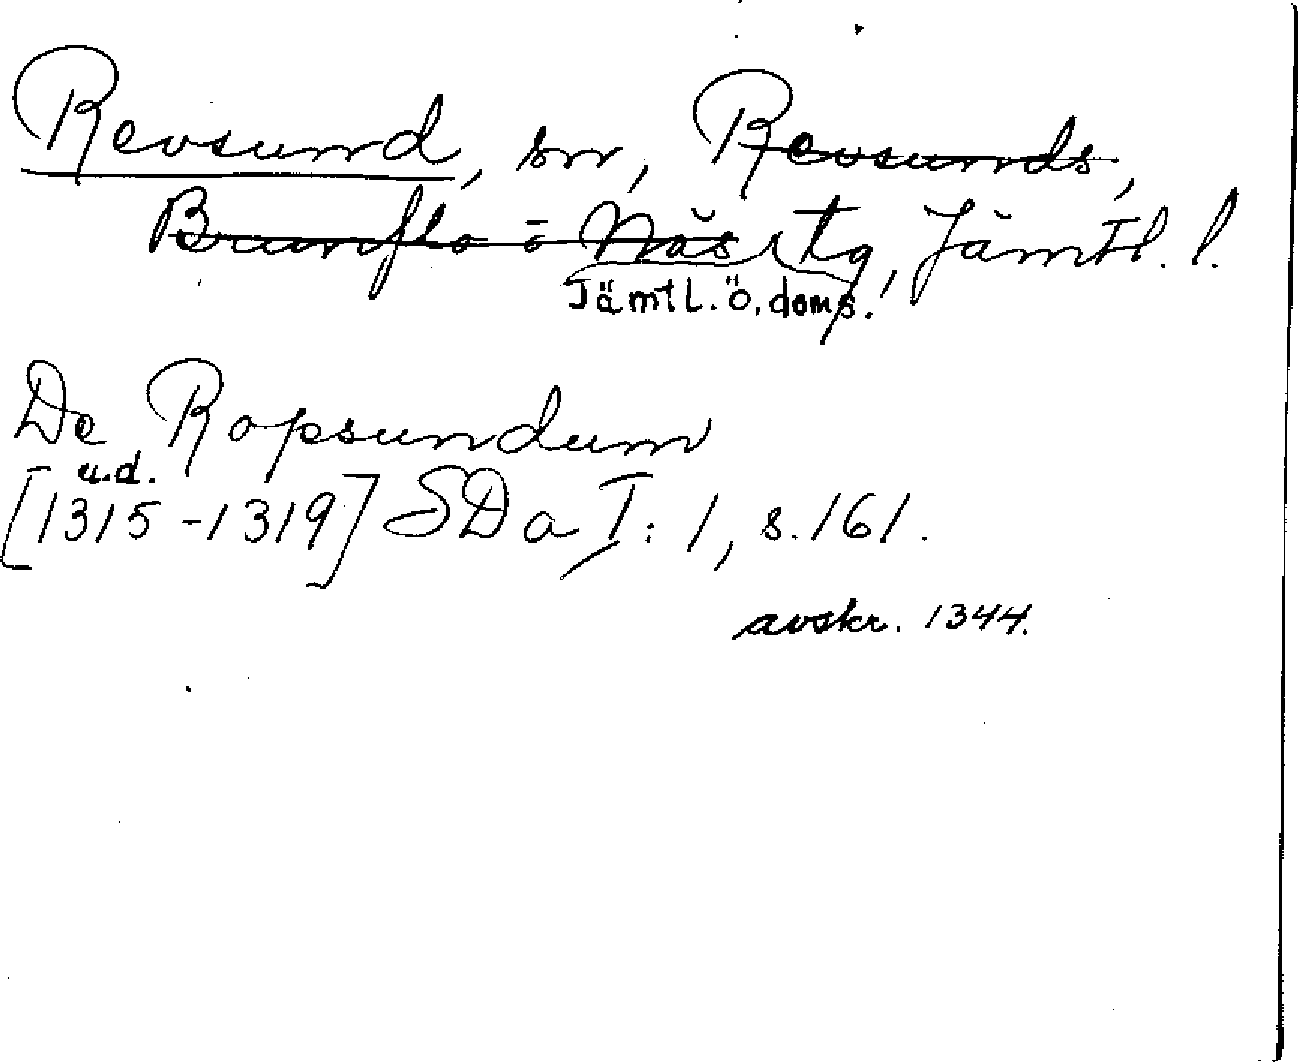 Revsund, sn, Revsunds,
Brunflo o Näs tg, Jämtl. l.
Jämtl. ö. doms.
De Ropsundum
u.d.
[1315-1319] SDa I: 1, s. 161.
avskr. 1344.